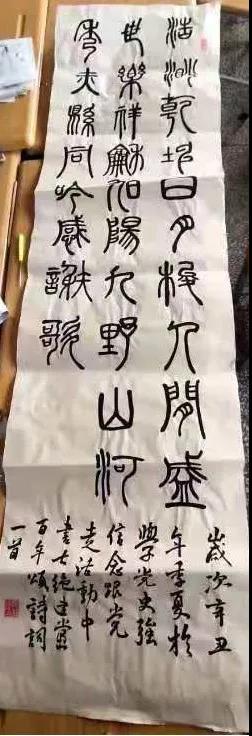 浩渺乾坤日月梭人間盛
世樂祥龢陽九野山河
秀赤縣同吟感謝歌
歲次辛丑
年季夏於
學党史強
信念跟党
走活動中
書七絕建党
百年頌詩詞
一首